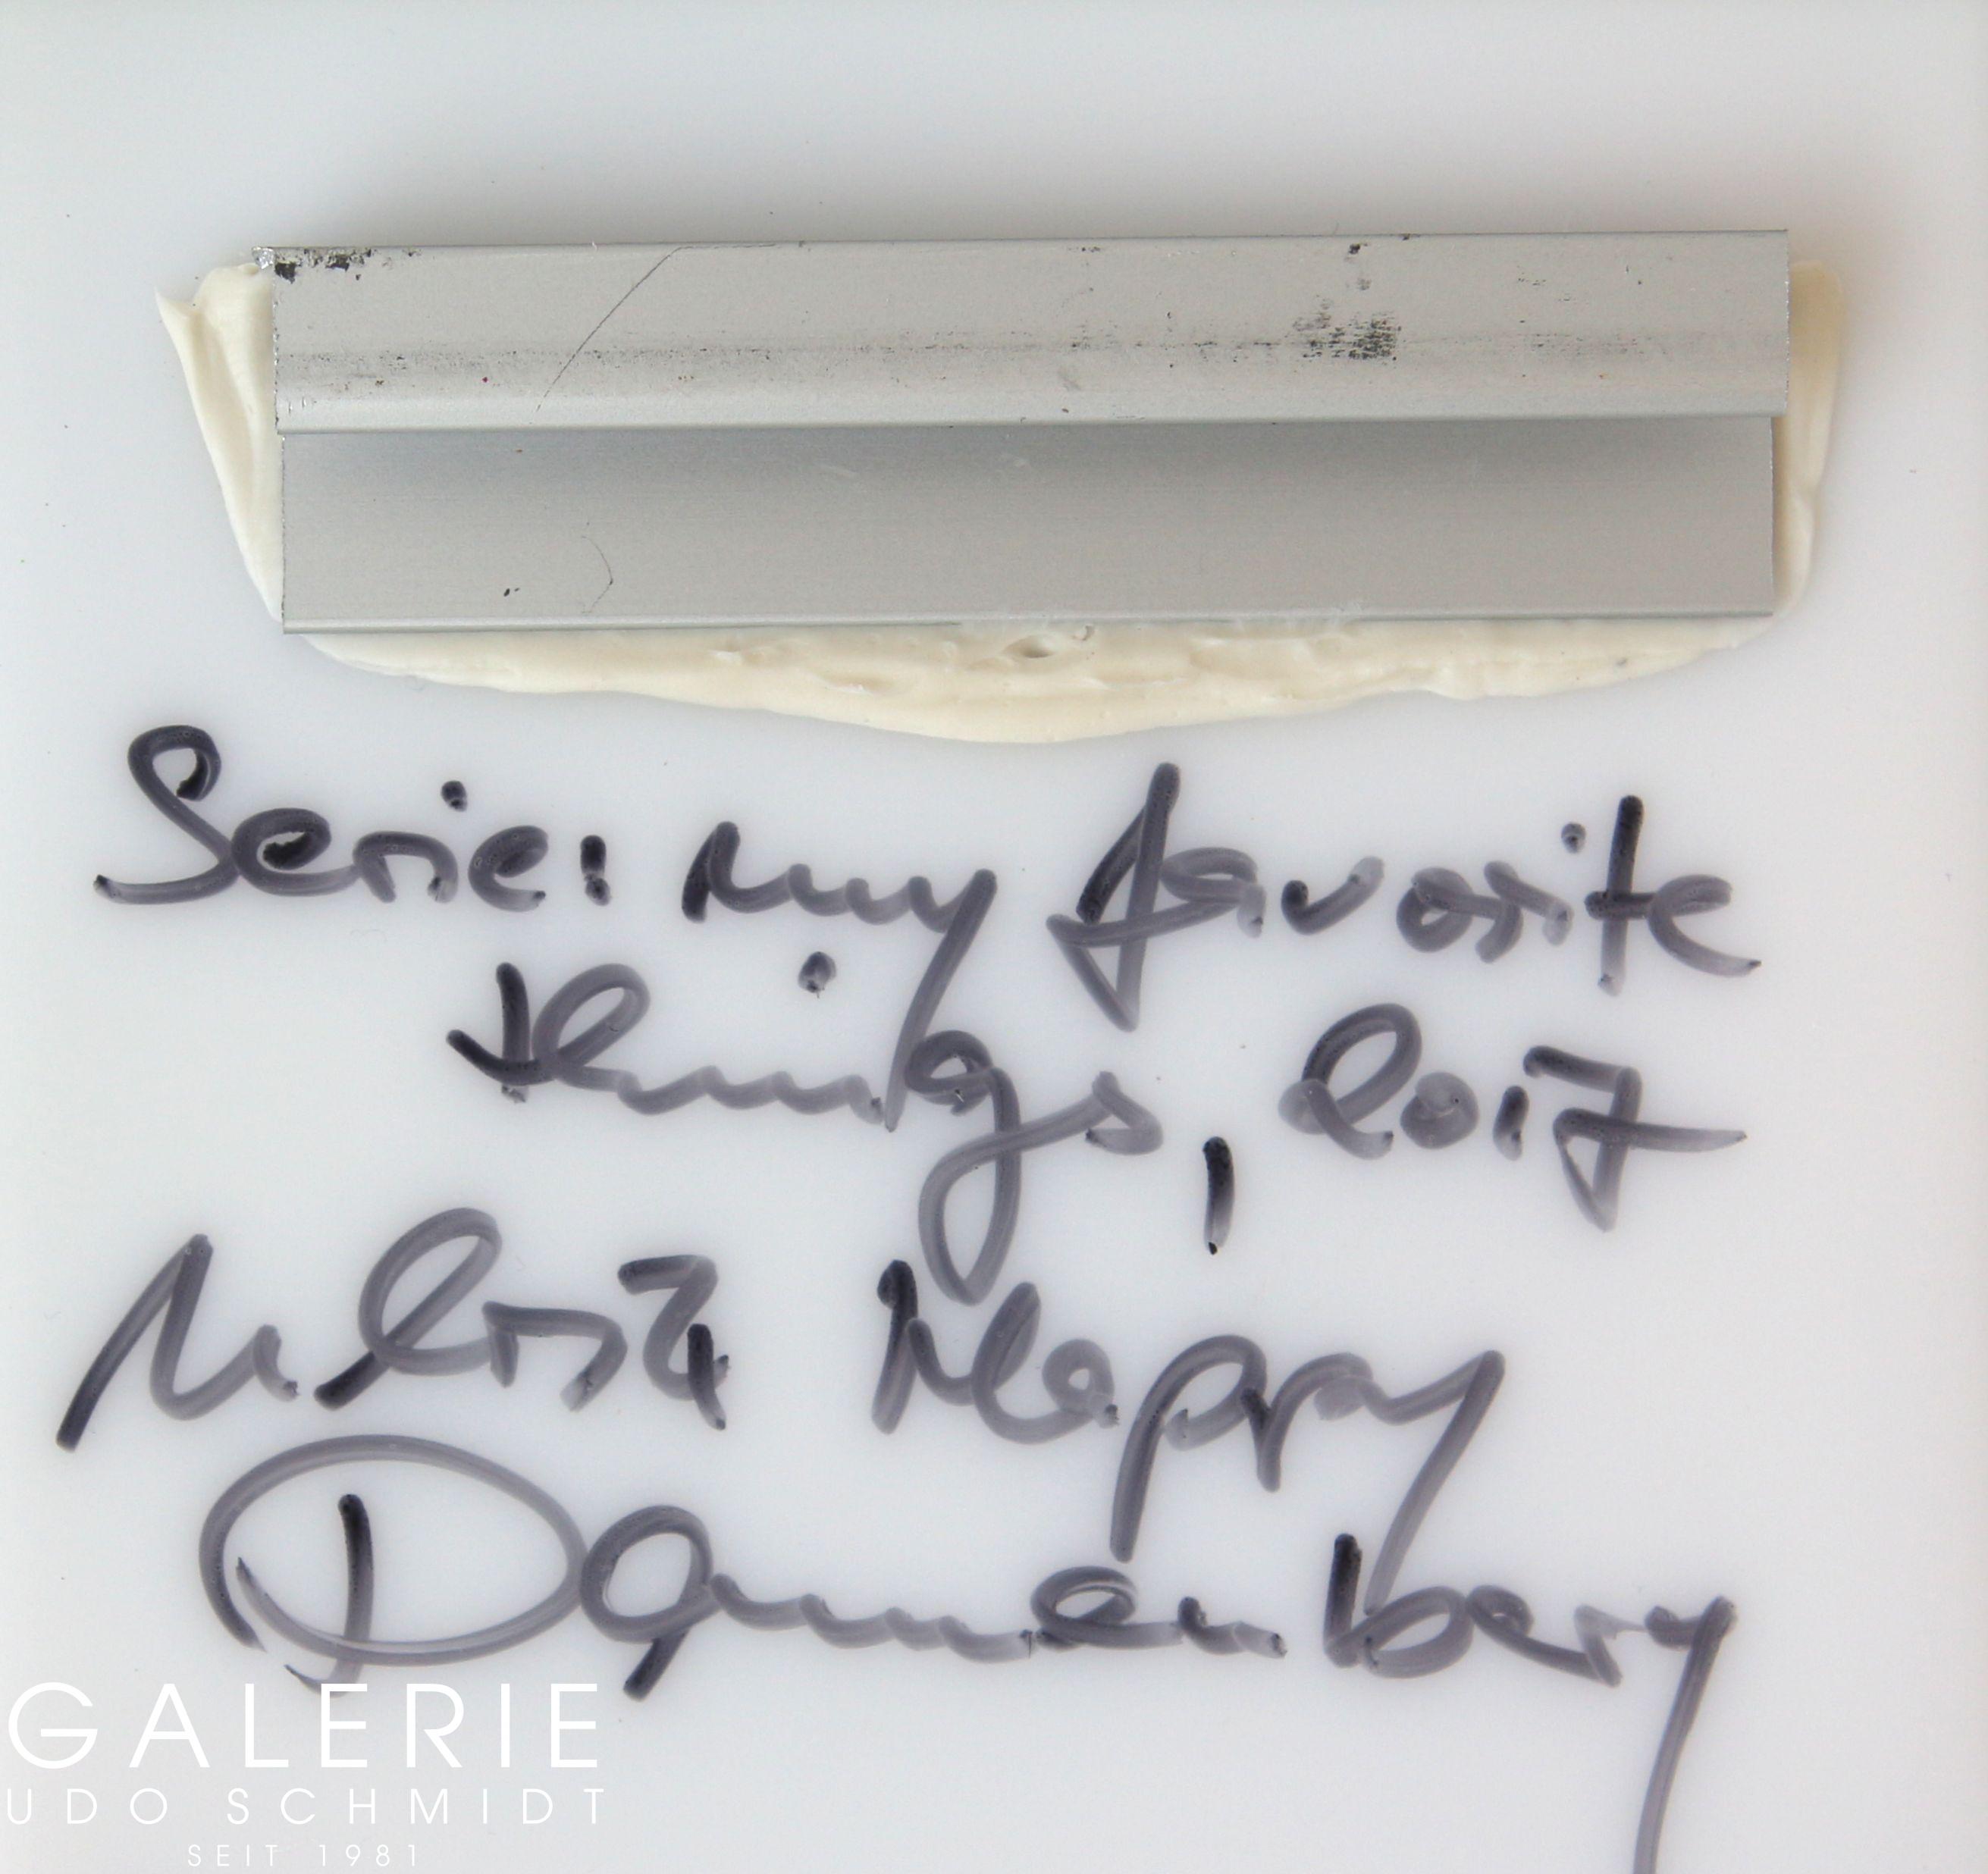 Serie: my favorite
things, 2017
Dannenberg
GALERIE
UDO SCHMIDT
SEIT 1981